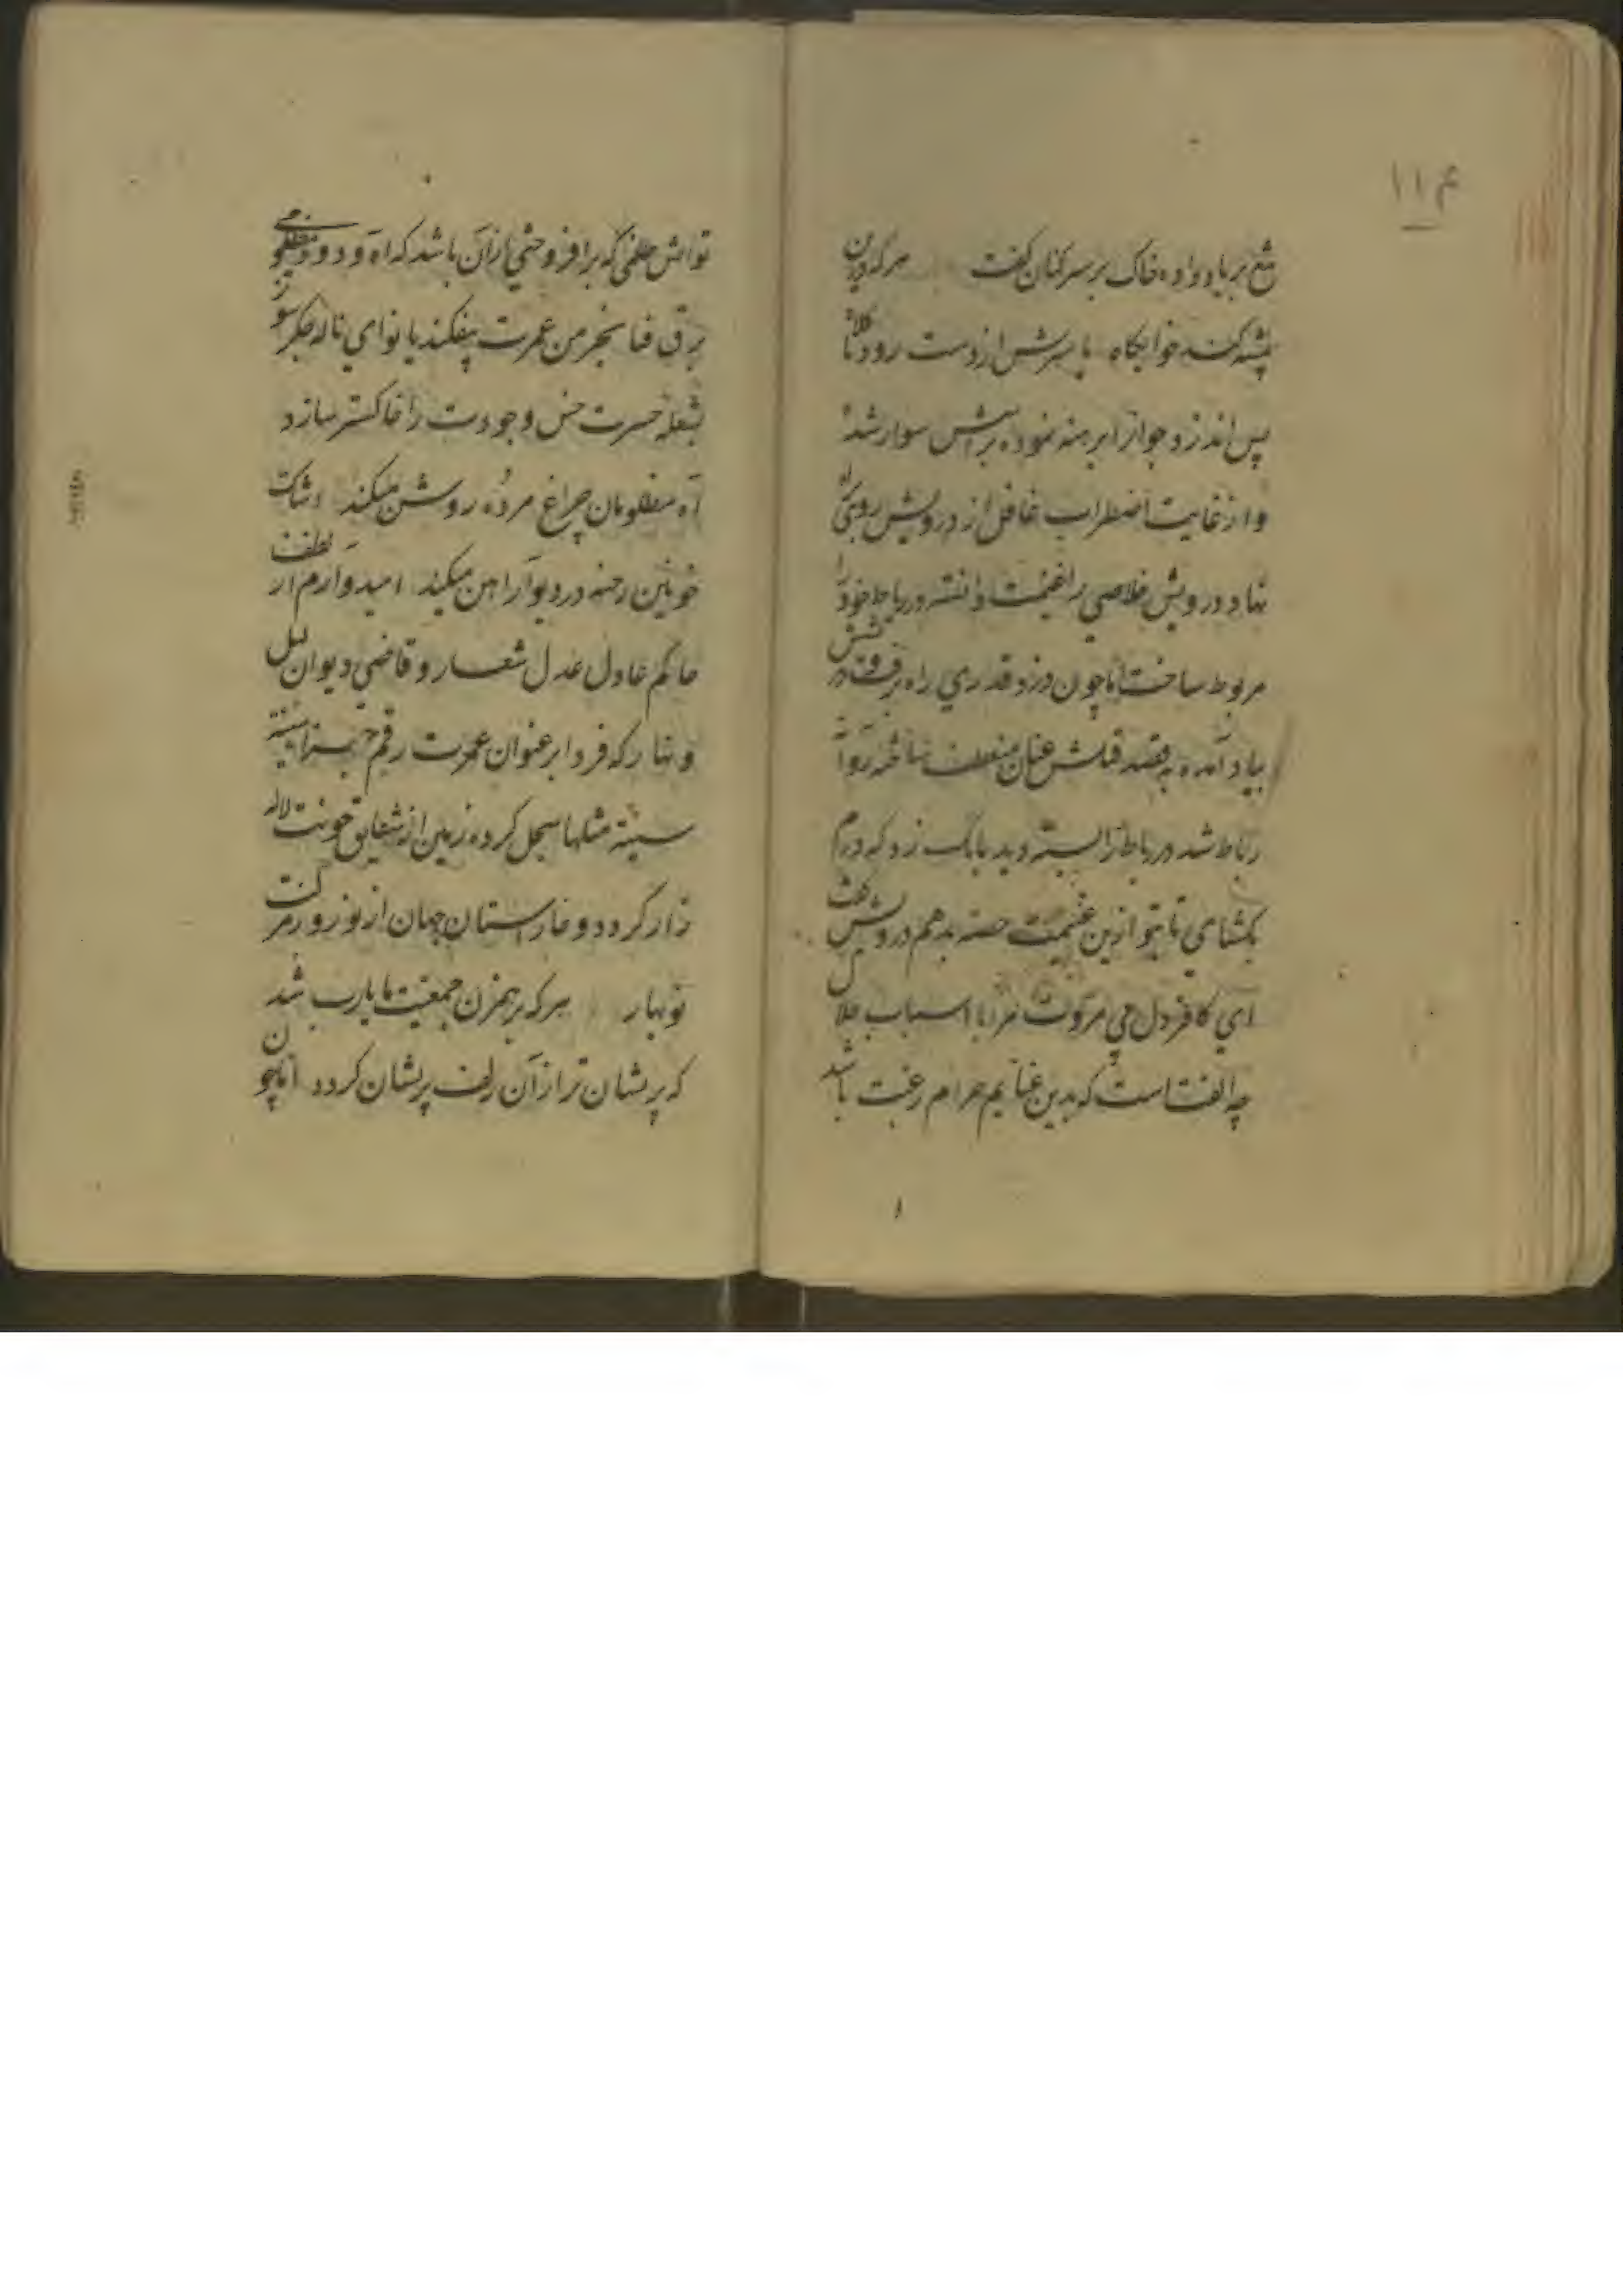 ۱۱۴
شع بر باد داده خاک بر سر کنان گفت هر که درین
پیشه کند خوابگاه یا سرش از دست رود یا کلاه
پس اندر دجواز ابرهنه نموده برآتش سوار شد
و از غایت اضطراب غافل از درویش روی براه
نهاد درویش خلاصی را غنیمت دانسته در رباط خود را
مربوط ساخت اما چون دزد قدری راه برفت درویش
بیاد آمده به قصد قتلش عنان منعطف ساخته روانه
رباط شد در رباط را بسته دید بانگ زد که درم
بکشای تا بتو ازین غنیمت حصه بدهم درویش گفت
ای کافر دل بی مروت مرا با اسباب
چه الفت است که بدین غنایم حرام رغبت باشد
تو آتش ظلمی که بر افروختی از آن باشد که آه و دود مظلومی
برق فنا بخرمن عمرت بیفکند یا نوای ناله جگر سوز
بشعله حسرت خس وجودت را خاکستر سازد
آه مظلومان چراغ مرده روشن میکند اشک
خونین رخنه در دیوار آهن میکند امیدوارم از لطف
حاکم عادل عدل شعار و قاضی دیوان لیل
و نهار که فردا بر عنوان عمرت رقم جزاء سیئة
سیئة مثلها سجل کرده زمین از شقایق خونت لاله
زار گردد و خارستان جهان از نوروز مرگت
نوبهار هر که بر همزن جمعیت ما یارب شد
که پریشان تر از آن زلف پریشان گردد اما چون